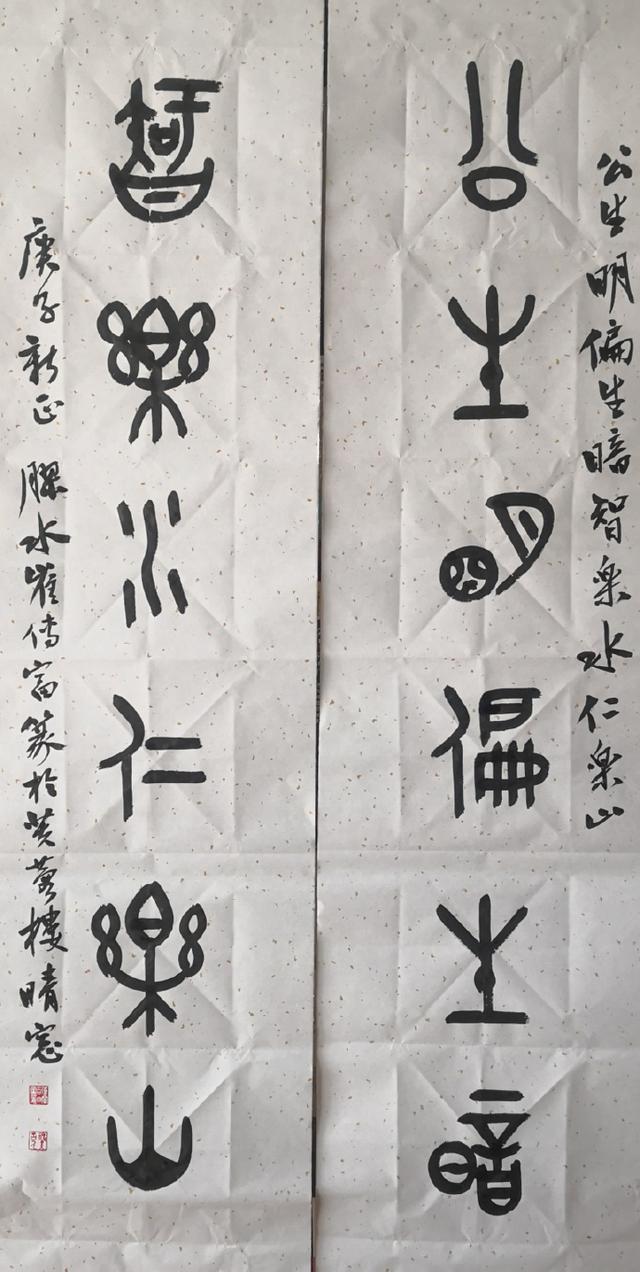 公生明偏生暗智楽水仁楽山
公生明偏生暗
智樂水仁樂山
庚子新正 膠水崔傳富篆於芙蓉樓晴窗